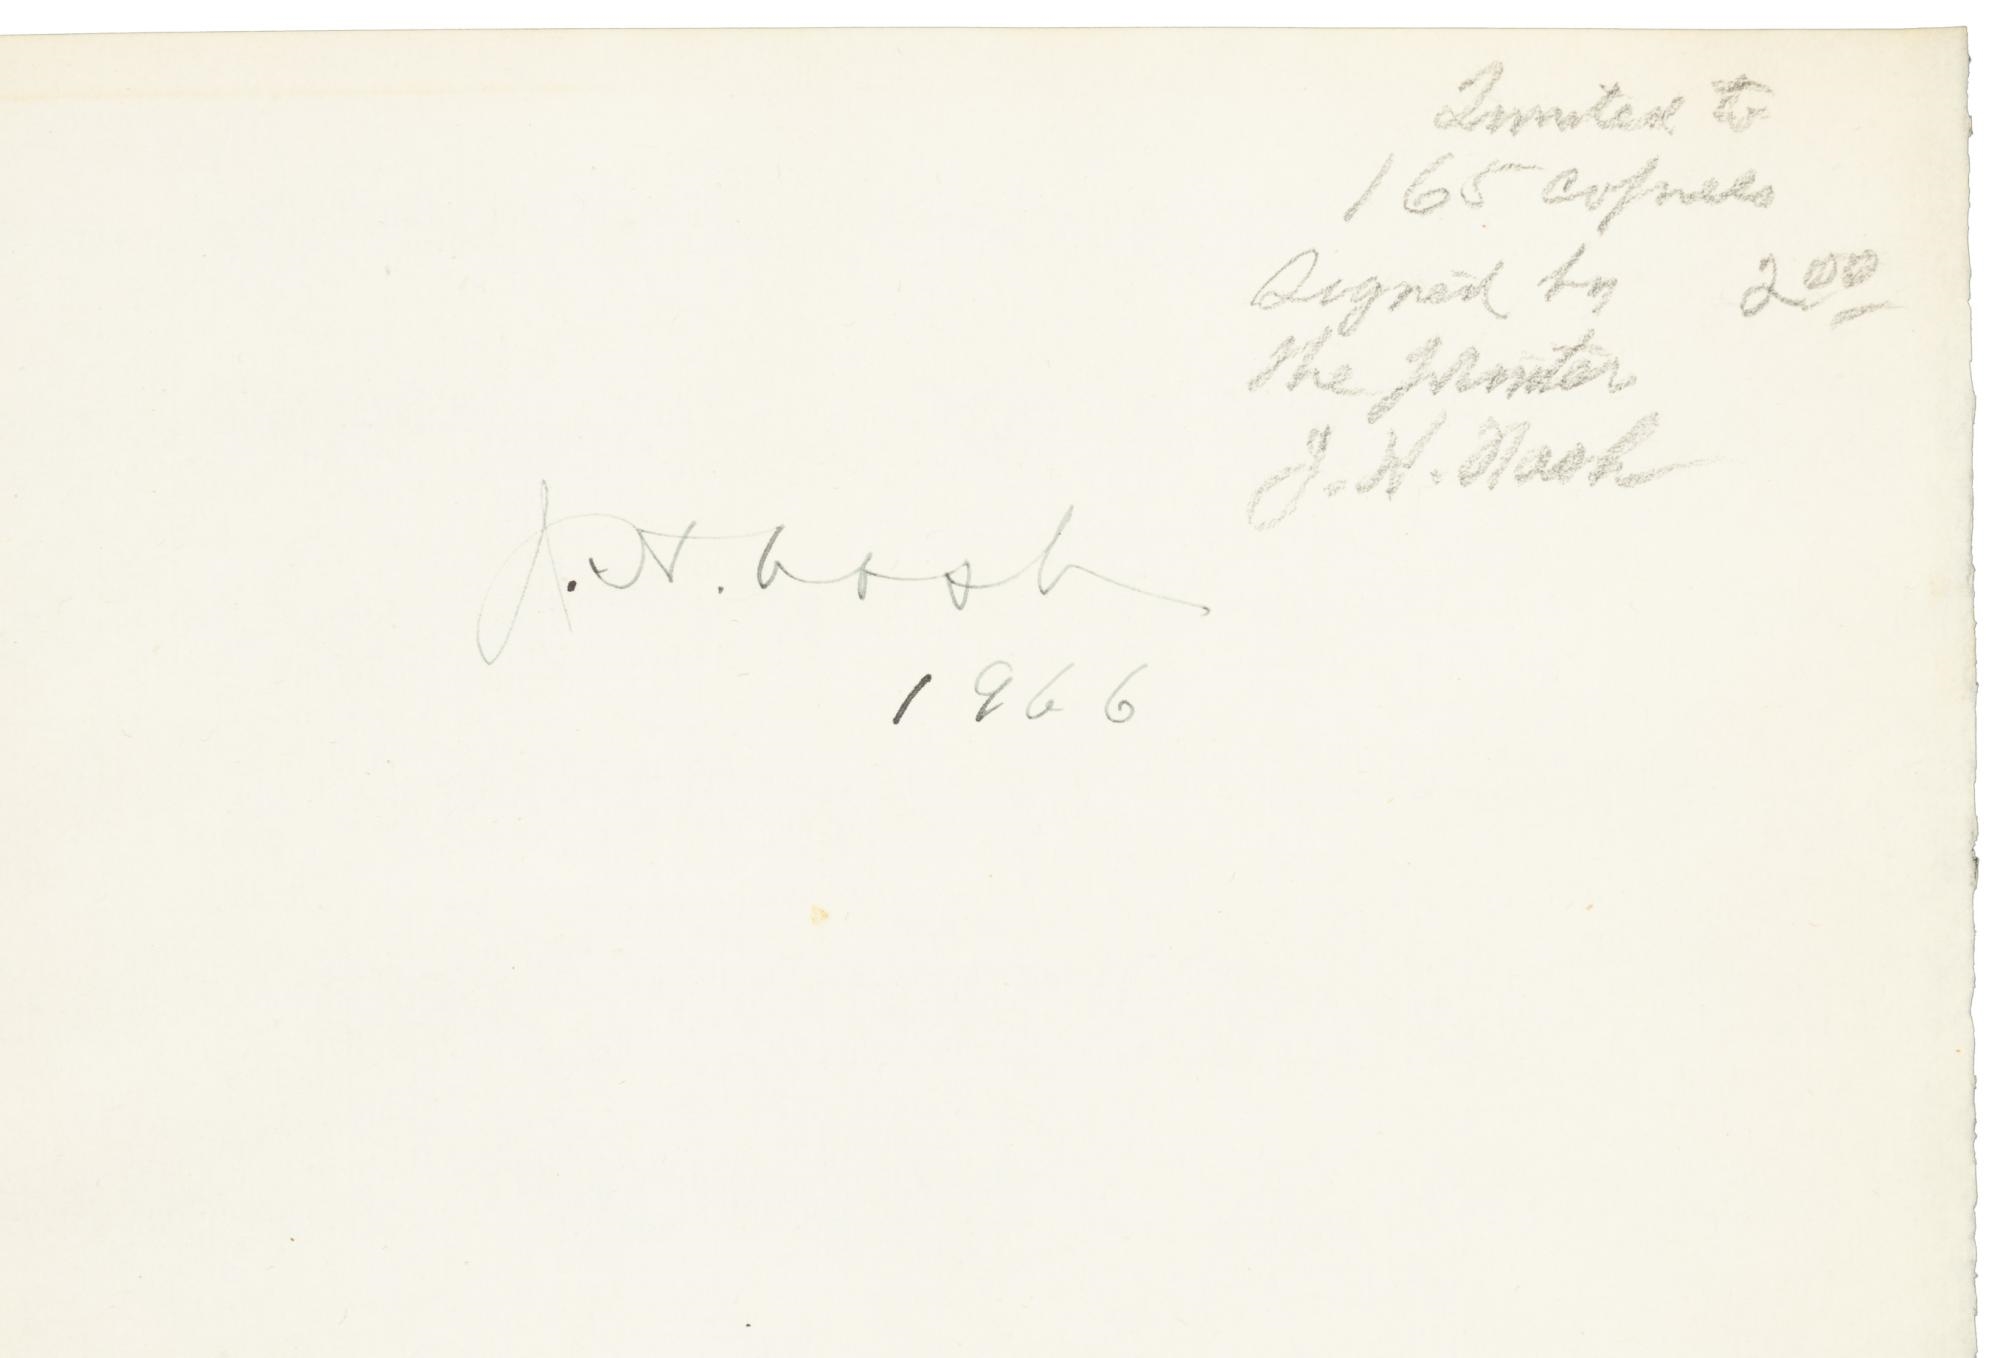 Limited to
165 copies
signed by 2 00
the printer
J. H. Nash
J. H. Nash
1966